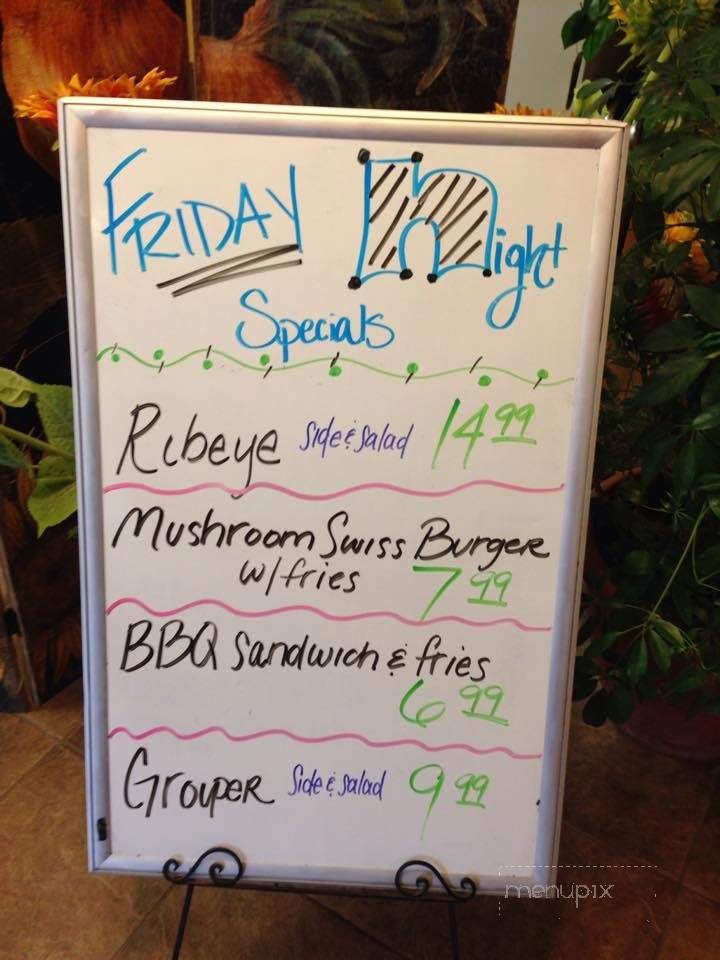 FRIDAY night
Specials
Ribeye side & salad 14 99
Mushroom Swiss Burger
w/fries 7 99
BBQ Sandwich & fries
6 99
Grouper side & salad 9 99
menupix